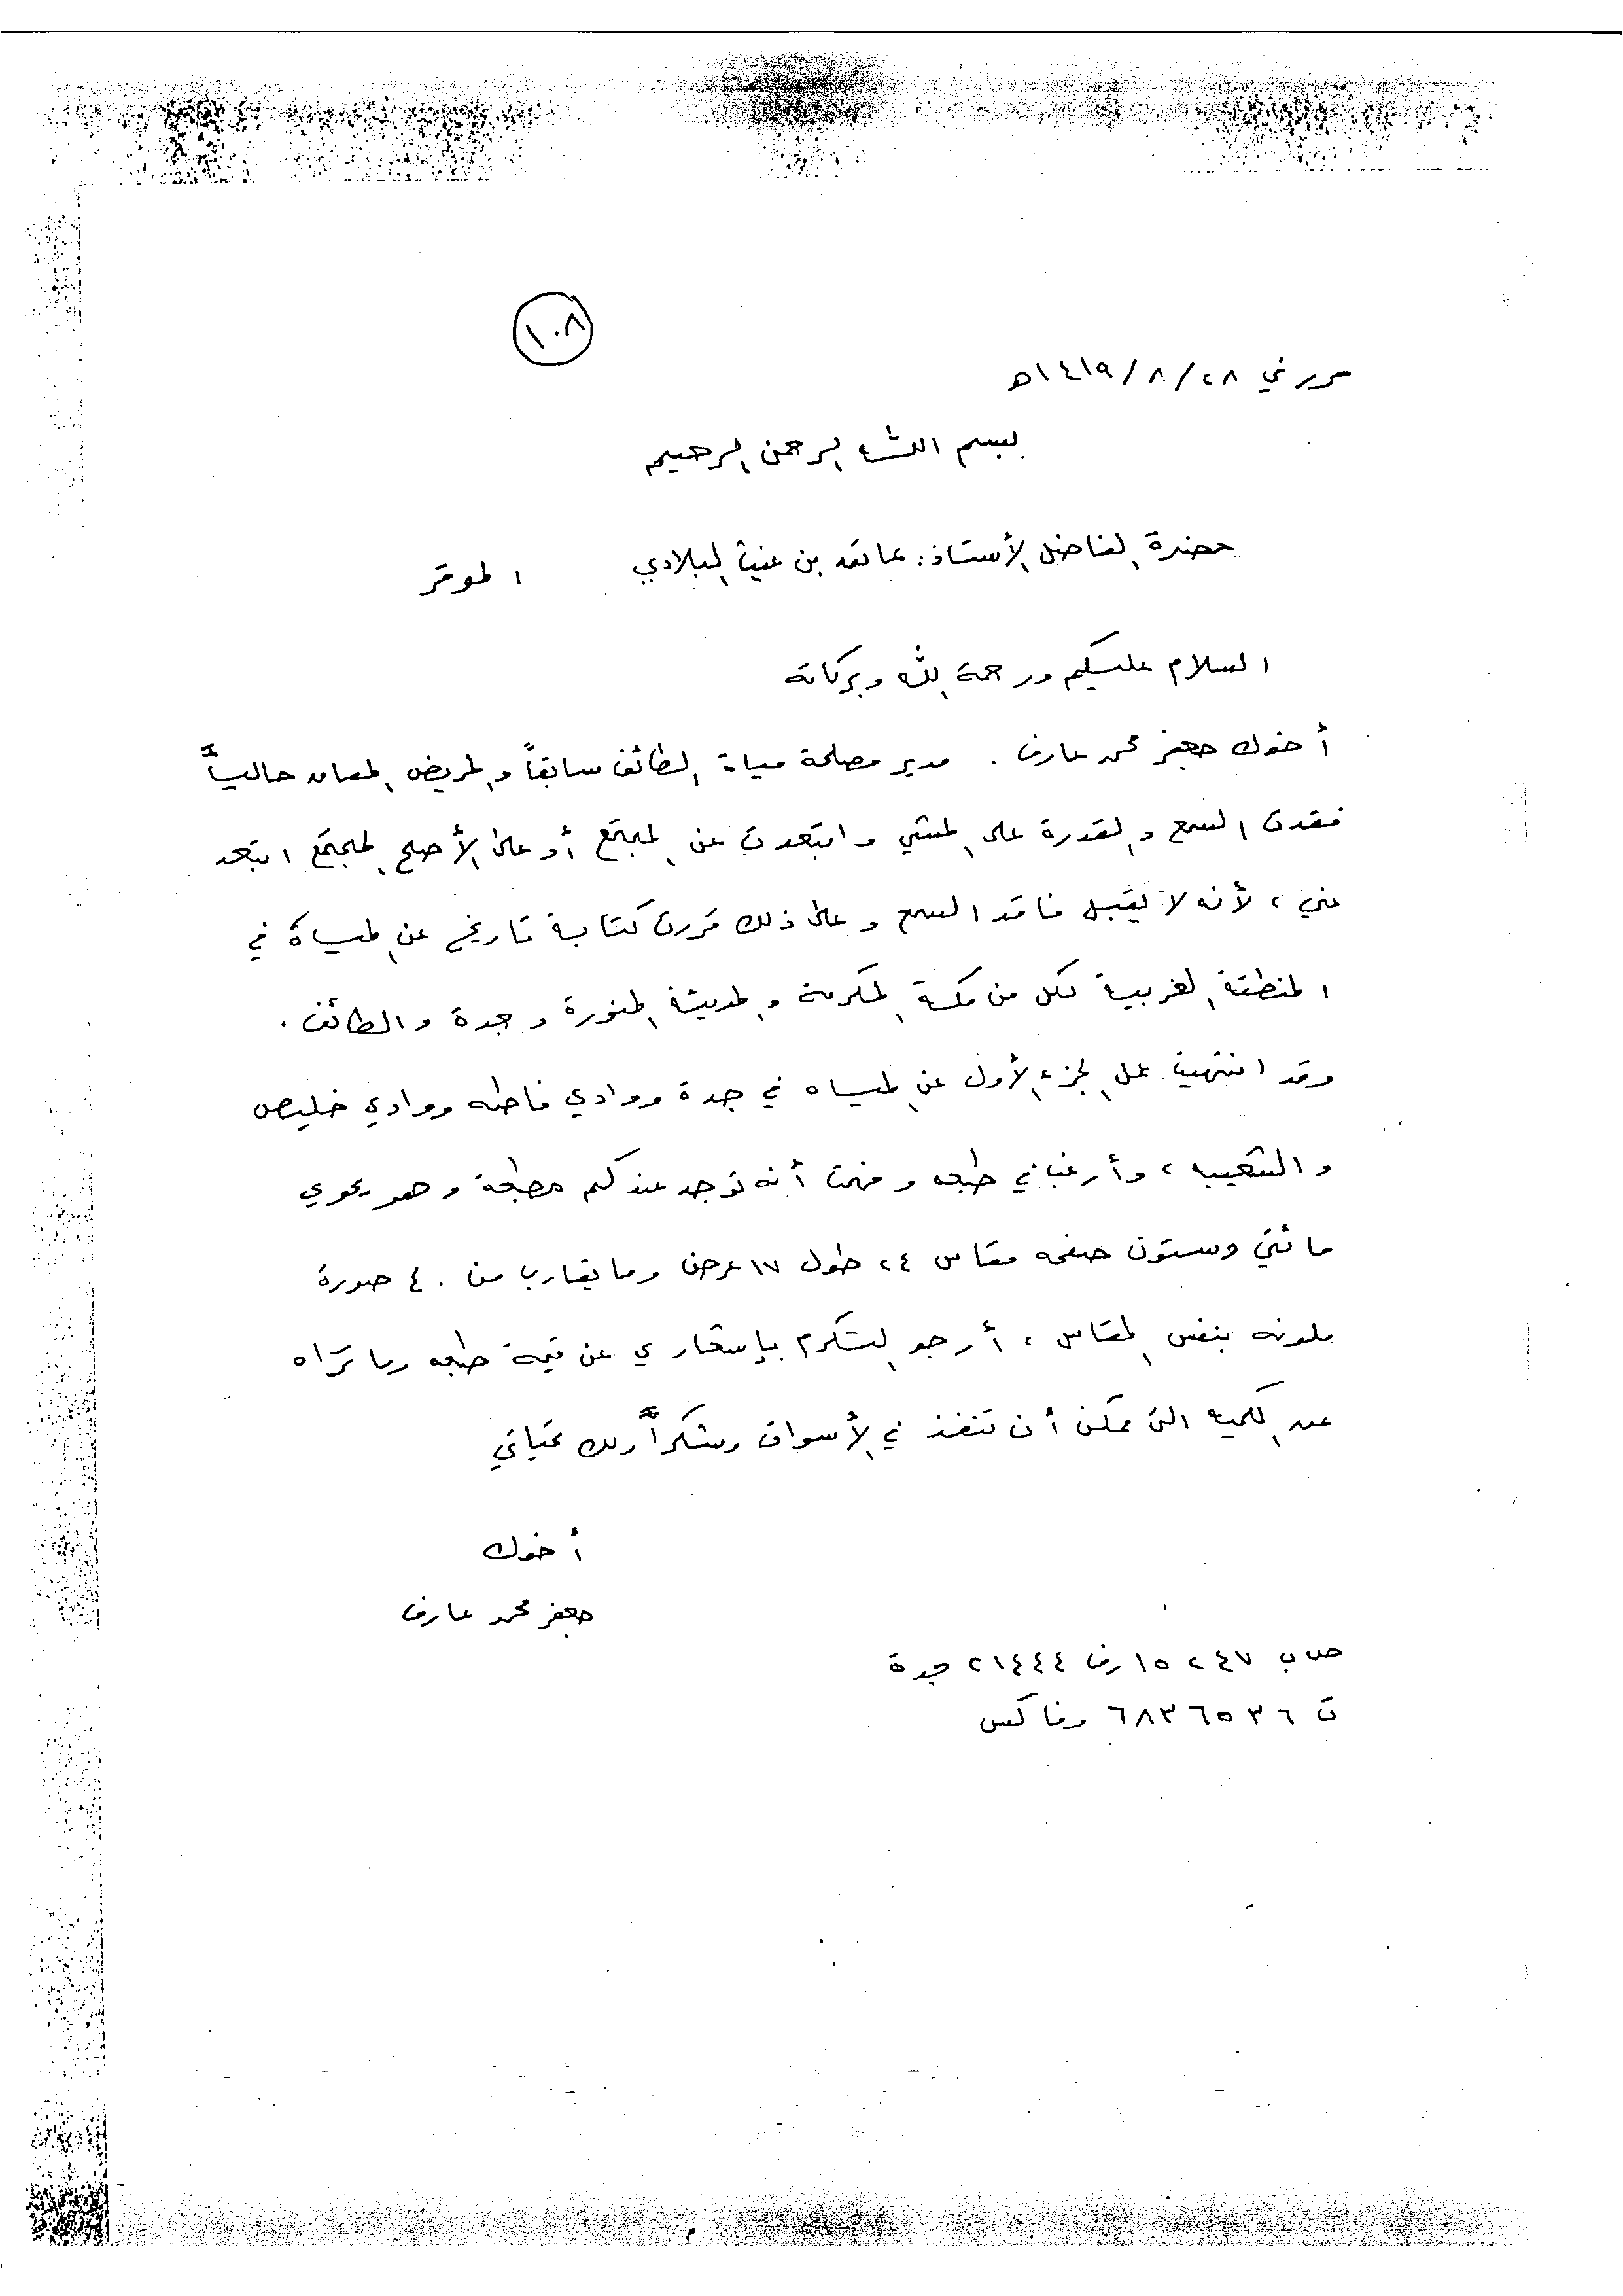 ١٠٨
حرر في ٢٨/٨/١٤١٩ه
بسم الله الرحمن الرحيم
حضرة الفاضل الأستاذ: عاتق بن غيث البلادي الموقر
السلام عليكم ورحمة الله وبركاته
أخوك جعفر محمد عارف. مدير مصلحة مياة الطائف سابقاً والمريض المعاق حالياً
فقدت السمع والقدرة على المشي وابتعدت عن المجتمع أو على الأصح المجتمع ابتعد
عني، لأنه لا يقبل فاقد السمع وعلى ذلك قررت كتابة تاريخ عن المياة في
المنطقة الغربية لكل من مكة المكرمة والمدينة المنورة وجدة والطائف.
وقد انتهيت عمل الجزء الأول عن المياه في جدة ووادي فاطمه ووادي خليص
والشعيبه، وأرغب في طبعه وفهمت أنه توجد عندكم مطبعة وهو يحوي
مائتي وستون صفحه مقاس ٢٤ طول ١٧ عرض وما يقارب من ٤٠ صورة
ملونه بنفس المقاس، أرجو التكرم بإشعاري عن قيمة طبعه وما تراه
عن الكميه التي ممكن أن تنفذ في الأسواق وشكراً ولك تحياتي
أخوك
جعفر محمد عارف
ص ب ١٥٢٤٧ رف ٢١٤٤٤ جدة
ت ٦٨٣٦٥٣٦ وفاكس